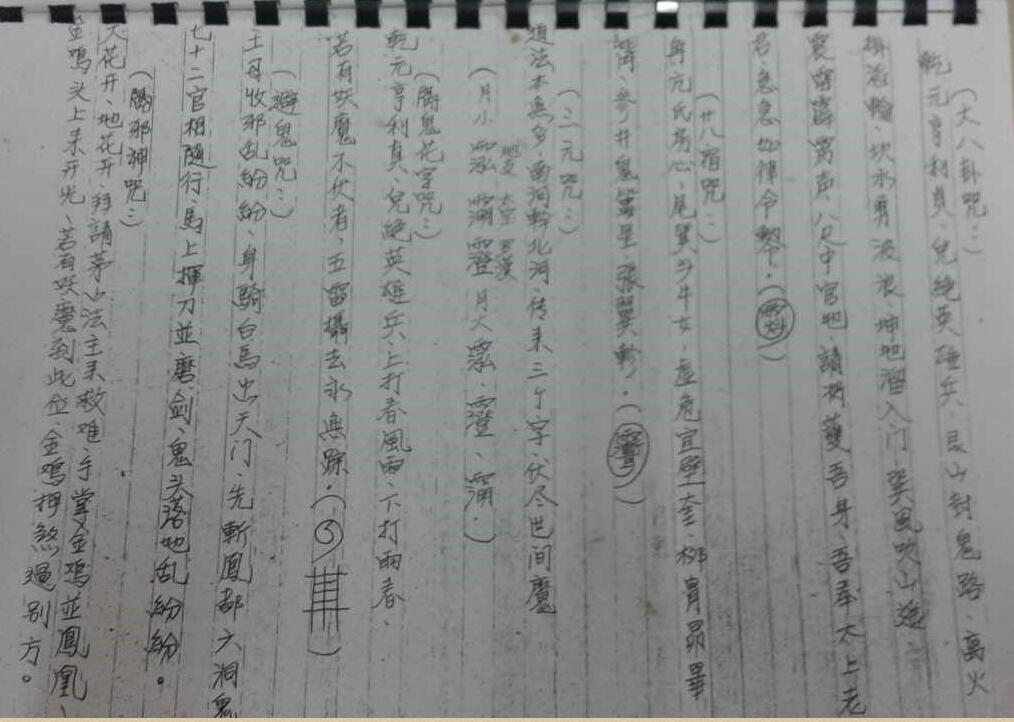 (大八卦咒:)
乾元亨利貞、兌絶英雄兵、艮山封鬼路、离火
輪、坎水勇波浪、坤地溜入门、巽風吹山
震雷霹雳声、八尺中宮地、請神護吾身、吾奉太上老
君、急急如律令
(廿八宿咒:)
角元氏房心、尾箕斗牛女、虛危宜壁奎、柳胃昴畢
觜、参井鬼星、張翼軫、
(三元咒:)
道法本無多、南河幹北河、传来三个字、伏尽世间魔
(月小 月大、澄、
(鬼花字咒:)
乾元亨利真、兌絶英雄兵、上打春風雨、下打雨春、
若有妖魔不伏者、五雷攝去永無踪。
(避鬼咒:)
王母收邪乱紛紛、身騎白馬出天门、先斬鳳都六洞鬼
七十二官相隨行、馬上揮刀並磨剑、鬼头落地乱紛紛。
(邪神咒:)
天花开、地花开、拜請茅山法主来救难、手掌金鸡並鳳凰、
金鸡头上来开光、若有妖魔到此位、金鸡押煞過别方。